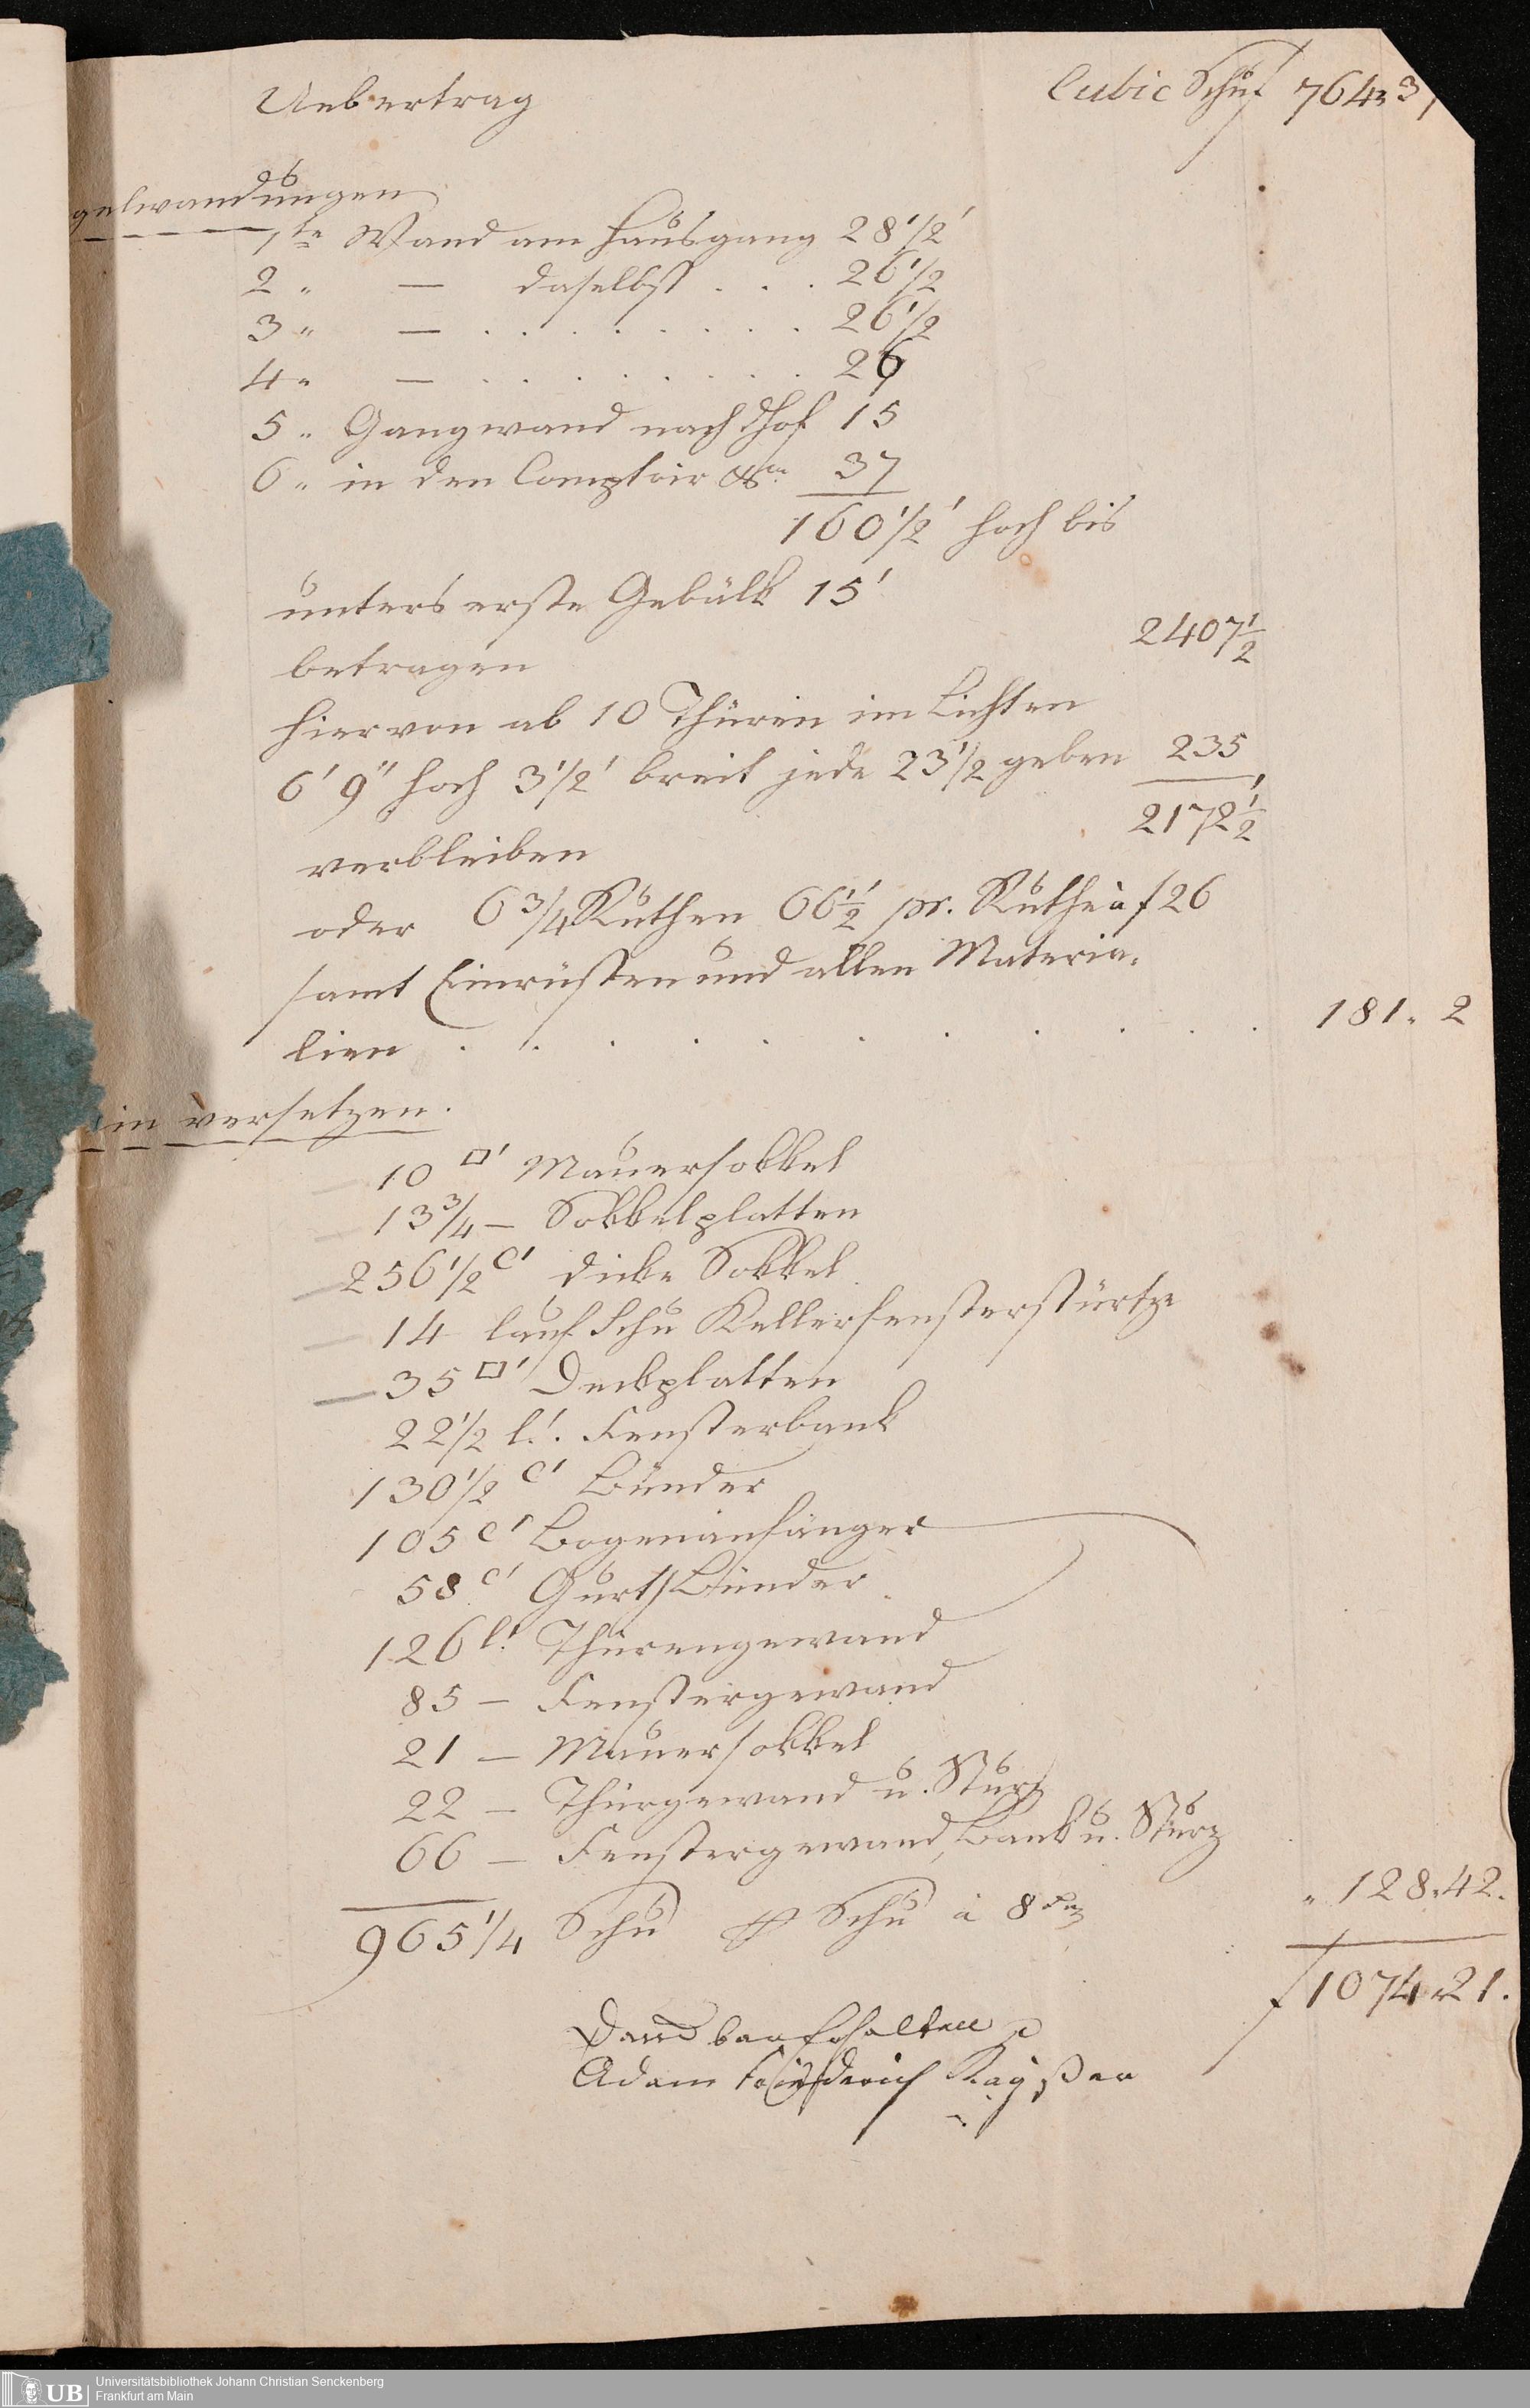 Uebertrag Cubic Schu f 764 " 37
gelwandungen
1te Wand am Hausgang 28 1/2'
2 " — daselbst . . . 26 1/2
3 " — . . . . . . . . 26 1/2
4 " — . . . . . . . . 26
5 " Gangwand nach Hof 15
6 " in den Comptoir 37
160 1/2' hoch bis
unters erste Gebälk 15'
betragen 2407 1/2
hiervon ab 10 Thüren im Lichten
6' 9" hoch 3 1/2' breit jede 23 1/2 geben 235
verbleiben 2172 1/2'
oder 6 3/4 Ruthen 66 1/2' pr. Ruthe à f 26
samt Einrüsten und allen Materia-
lien . . . . . . . . . . 181 " 2
in versetzen.
10 □' Mauersokkel
13 3/4 — Sokkelplatten
256 1/2 C' dicke Sokkel
14 lauf Schu Kellerfensterstürtze
35 □' Deckplatten
22 1/2 l.' Fensterbank
130 1/2 C' Bünder
105 C' Bogenanfänger
58 C' Gurt Bünder
126 l.' Thürengewand
85 — Fenstergewand
21 — Mauersokkel
22 — Thürgewand u. Sturz
66 — Fenstergewand, Bank u. Sturz
965 1/4 Schu Schu à 8 Xr " 128 " 42.
f 1074 " 21.
Dand bar Erhalten
Adam Friederich Kayßer
Universitätsbibliothek Johann Christian Senckenberg
Frankfurt am Main
UB